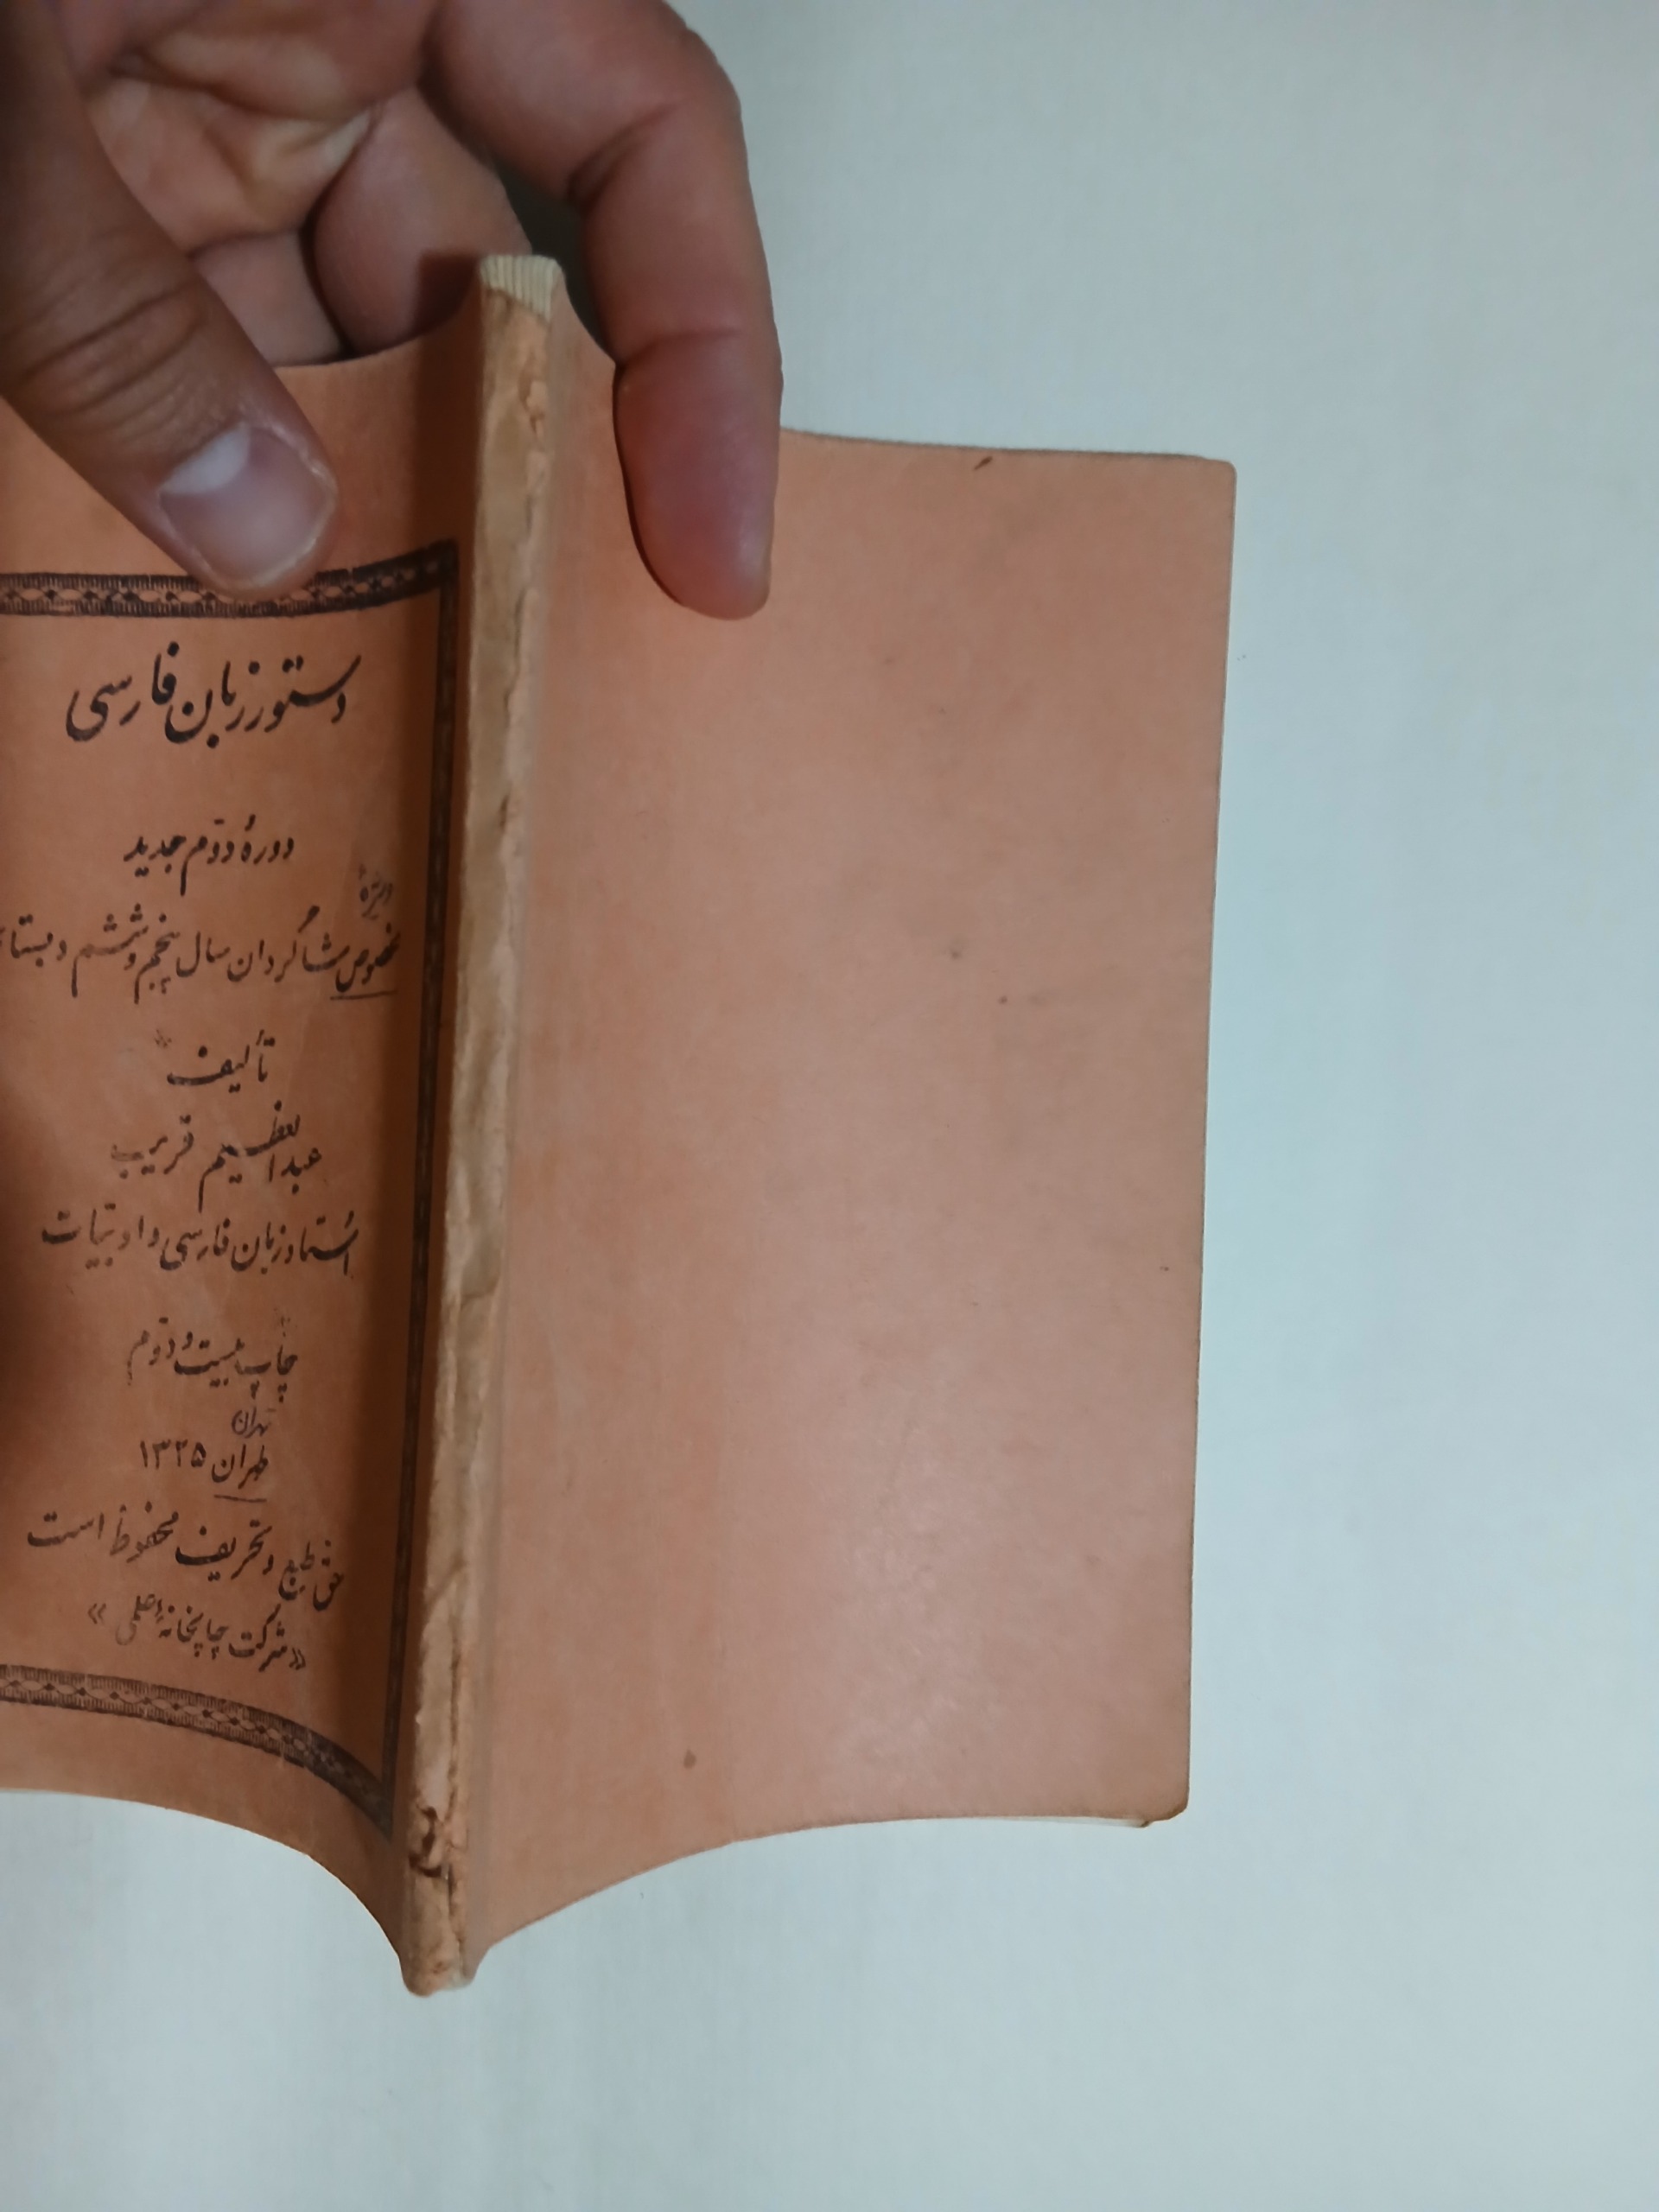 دستور زبان فارسی
دورهٔ دوّم جدید
ویژهٔ
مخصوص شاگردان سال پنجم و ششم دبستا
تألیف
عبدالعظیم قریب
اُستاد زبان فارسی و ادبیّات
چاپ بیست و دوّم
تهران
طهران ۱۳۲۵
حق طبع و تحریف محفوظ است
«شرکت چاپخانهٔ علمی»